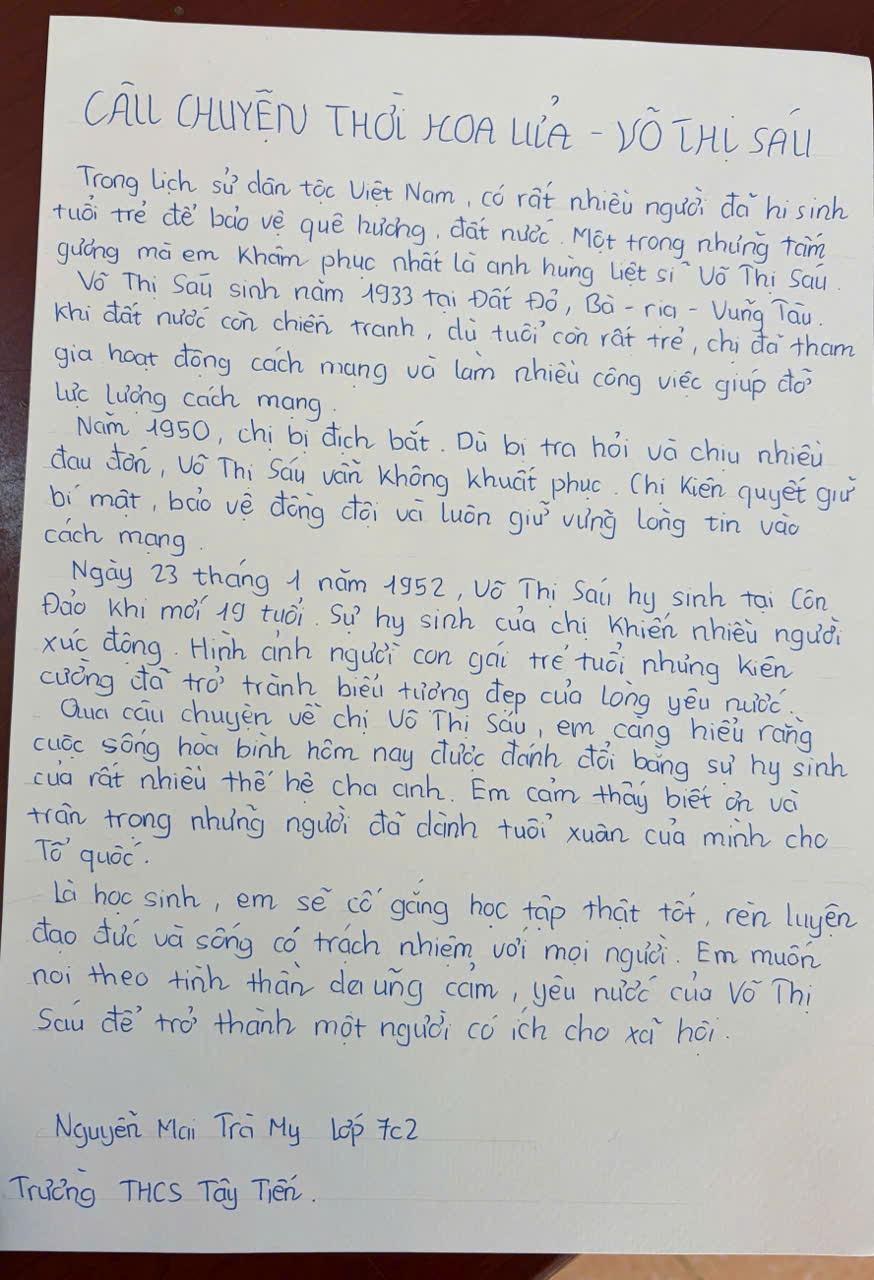 CÂU CHUYỆN THỜI HOA LỬA - VÕ THỊ SÁU
Trong lịch sử dân tộc Việt Nam, có rất nhiều người đã hi sinh
tuổi trẻ để bảo vệ quê hương, đất nước. Một trong những tấm
gương mà em khâm phục nhất là anh hùng liệt sĩ Võ Thị Sáu.
Võ Thị Sáu sinh năm 1933 tại Đất Đỏ, Bà - rịa - Vũng Tàu.
Khi đất nước còn chiến tranh, dù tuổi còn rất trẻ, chị đã tham
gia hoạt động cách mạng và làm nhiều công việc giúp đỡ
lực lượng cách mạng.
Năm 1950, chị bị địch bắt. Dù bị tra hỏi và chịu nhiều
đau đớn, Võ Thị Sáu vẫn không khuất phục. Chị kiên quyết giữ
bí mật, bảo vệ đồng đội và luôn giữ vững lòng tin vào
cách mạng.
Ngày 23 tháng 1 năm 1952, Võ Thị Sáu hy sinh tại Côn
Đảo khi mới 19 tuổi. Sự hy sinh của chị khiến nhiều người
xúc động. Hình ảnh người con gái trẻ tuổi nhưng kiên
cường đã trở trành biểu tượng đẹp của lòng yêu nước.
Qua câu chuyện về chị Võ Thị Sáu, em càng hiểu rằng
cuộc sống hòa bình hôm nay được đánh đổi bằng sự hy sinh
của rất nhiều thế hệ cha anh. Em cảm thấy biết ơn và
trân trọng những người đã dành tuổi xuân của mình cho
Tổ quốc.
Là học sinh, em sẽ cố gắng học tập thật tốt, rèn luyện
đạo đức và sống có trách nhiệm với mọi người. Em muốn
noi theo tinh thần da ũng cảm, yêu nước của Võ Thị
Sáu để trở thành một người có ích cho xã hội.
Nguyễn Mai Trà My lớp 7c2
Trường THCS Tây Tiến.